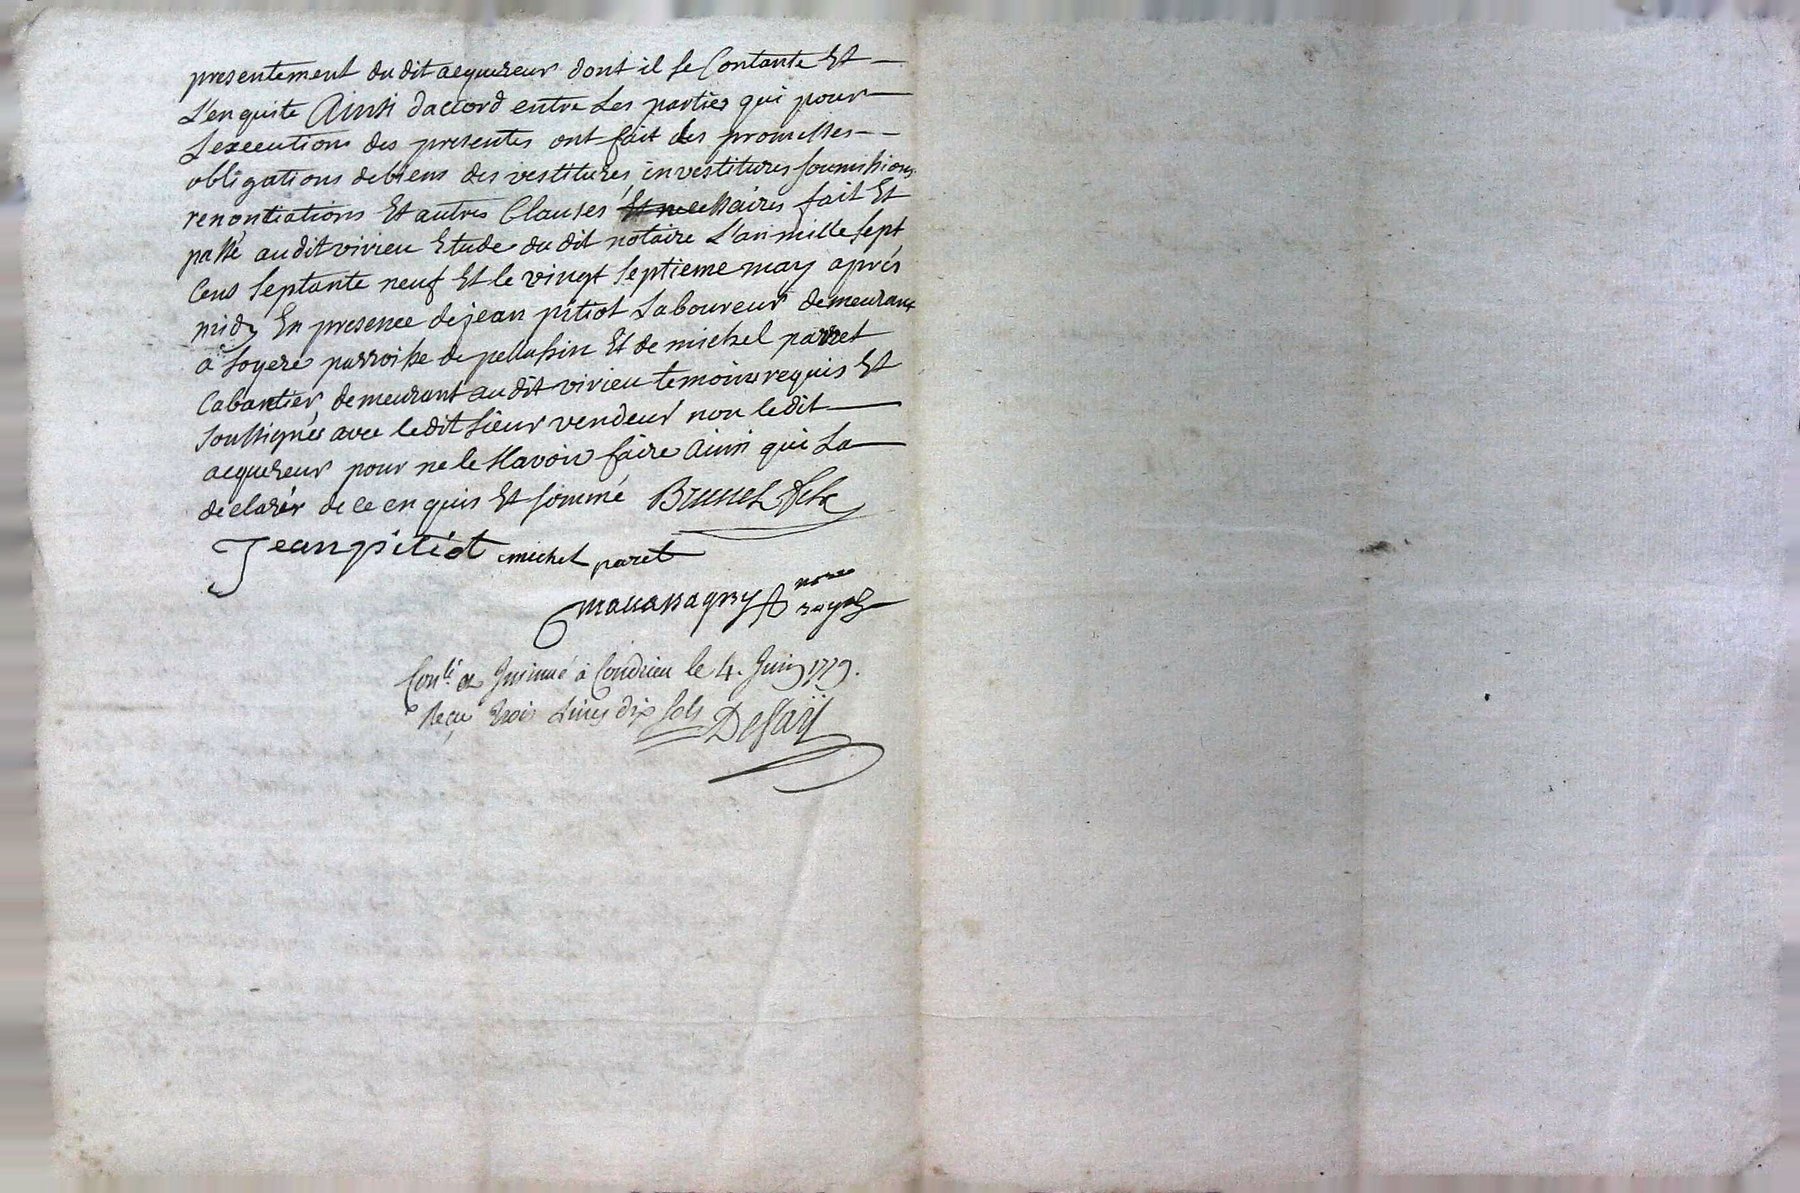 presentement du dit acquereur dont il se Contante Et
L'en quite Ainsi daccord entre Les parties qui pour
L'execution des presentes ont fait des promesses
obligations de biens des vestitures investitures soumissions
renontiations Et autres Clauses Et necessaires fait Et
passé au dit virieu Etude du dit notaire L'an mille sept
Cens septante neuf Et le vingt septieme may aprés
midy En presence de jean pitiot Laboureur demeurant
a soyere parroisse de pelussin Et de michel parret
Cabantier demeurant au dit virieu temoins requis Et
soussignés avec le dit sieur vendeur non le dit
acquereur pour ne le sçavoir faire Ainsi qui La
declarér de ce en quis Et sommé Brunel
Jean pitiot michel paret
nore
royal
Conlé et Insinué à Condrieu le 4. Juin 1779.
Reçu trois Livres dix sols